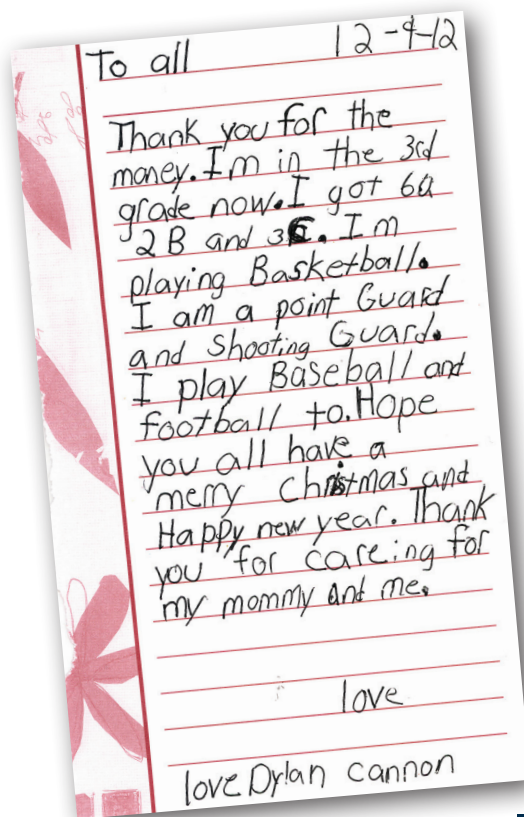 To all 12-9-12
Thank you for the
money. Im in the 3rd
grade now. I got 6a
2 B and 3C. Im
playing Basketball.
I am a point Guard
and shooting Guard.
I play Baseball and
football to. Hope
you all have a
merry Christmas and
Happy new year. Thank
you for careing for
my mommy and me.
love
love Dylan cannon